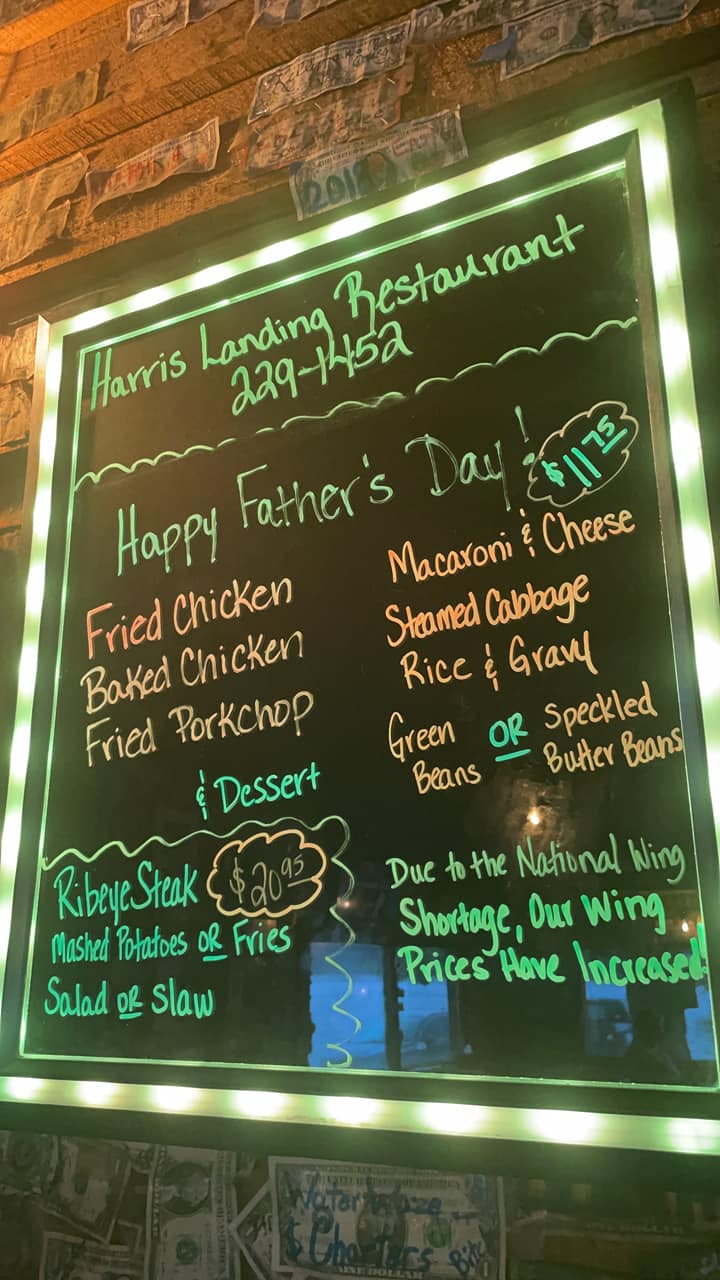 2018
Harris Landing Restaurant
229-1452
Happy Father's Day!
$11.75
Fried Chicken
Baked Chicken
Fried Porkchop
& Dessert
Macaroni & Cheese
Steamed Cabbage
Rice & Gravy
Green Beans OR Speckled Butter Beans
Ribeye Steak $20.95
Mashed Potatoes OR Fries
Salad OR Slaw
Due to the National Wing
Shortage, Our Wing
Prices Have Increased!
Charters
ONE DOLLAR